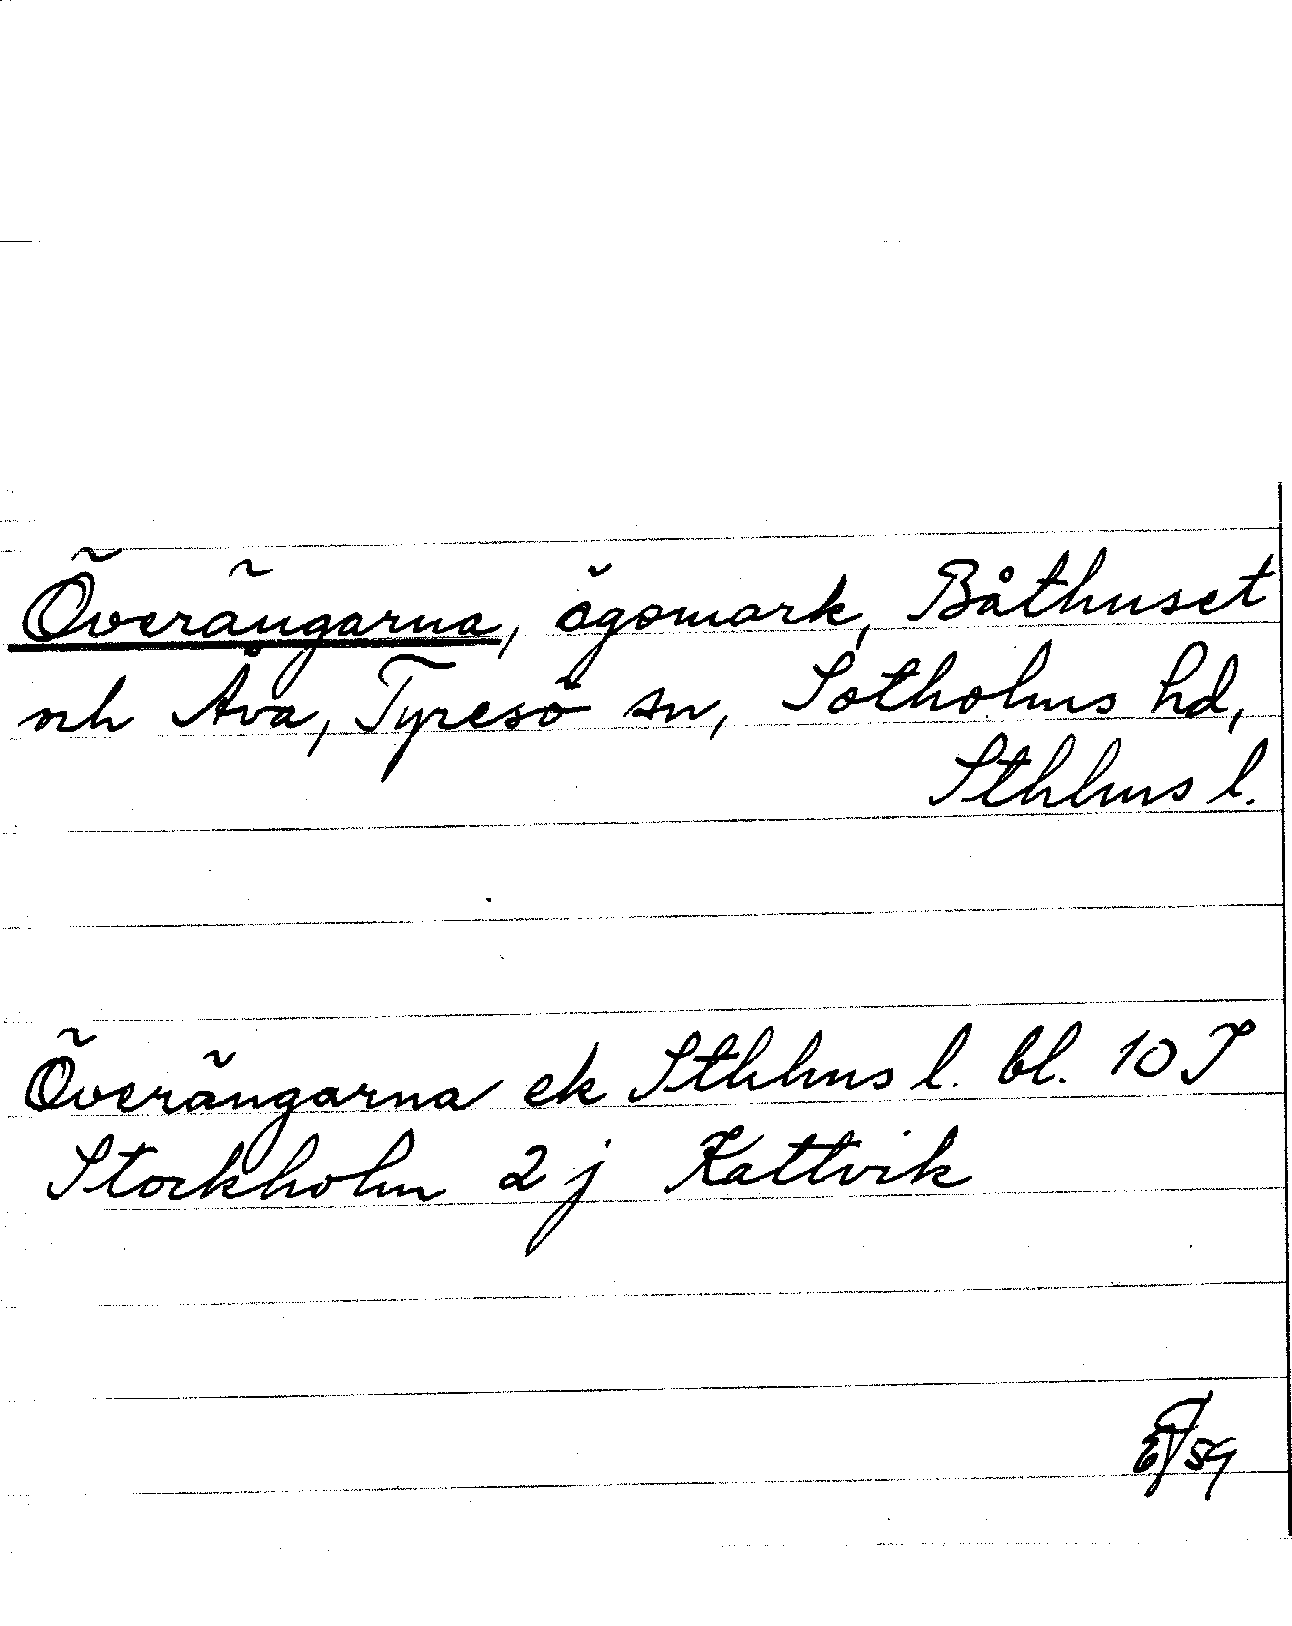 Överängarna, ägomark, Båthuset
och Åva, Tyresö sn, Sotholms hd,
Sthlms l.
Överängarna ek Sthlms l. bl. 10 I
Stockholm 2 j Kattvik
59